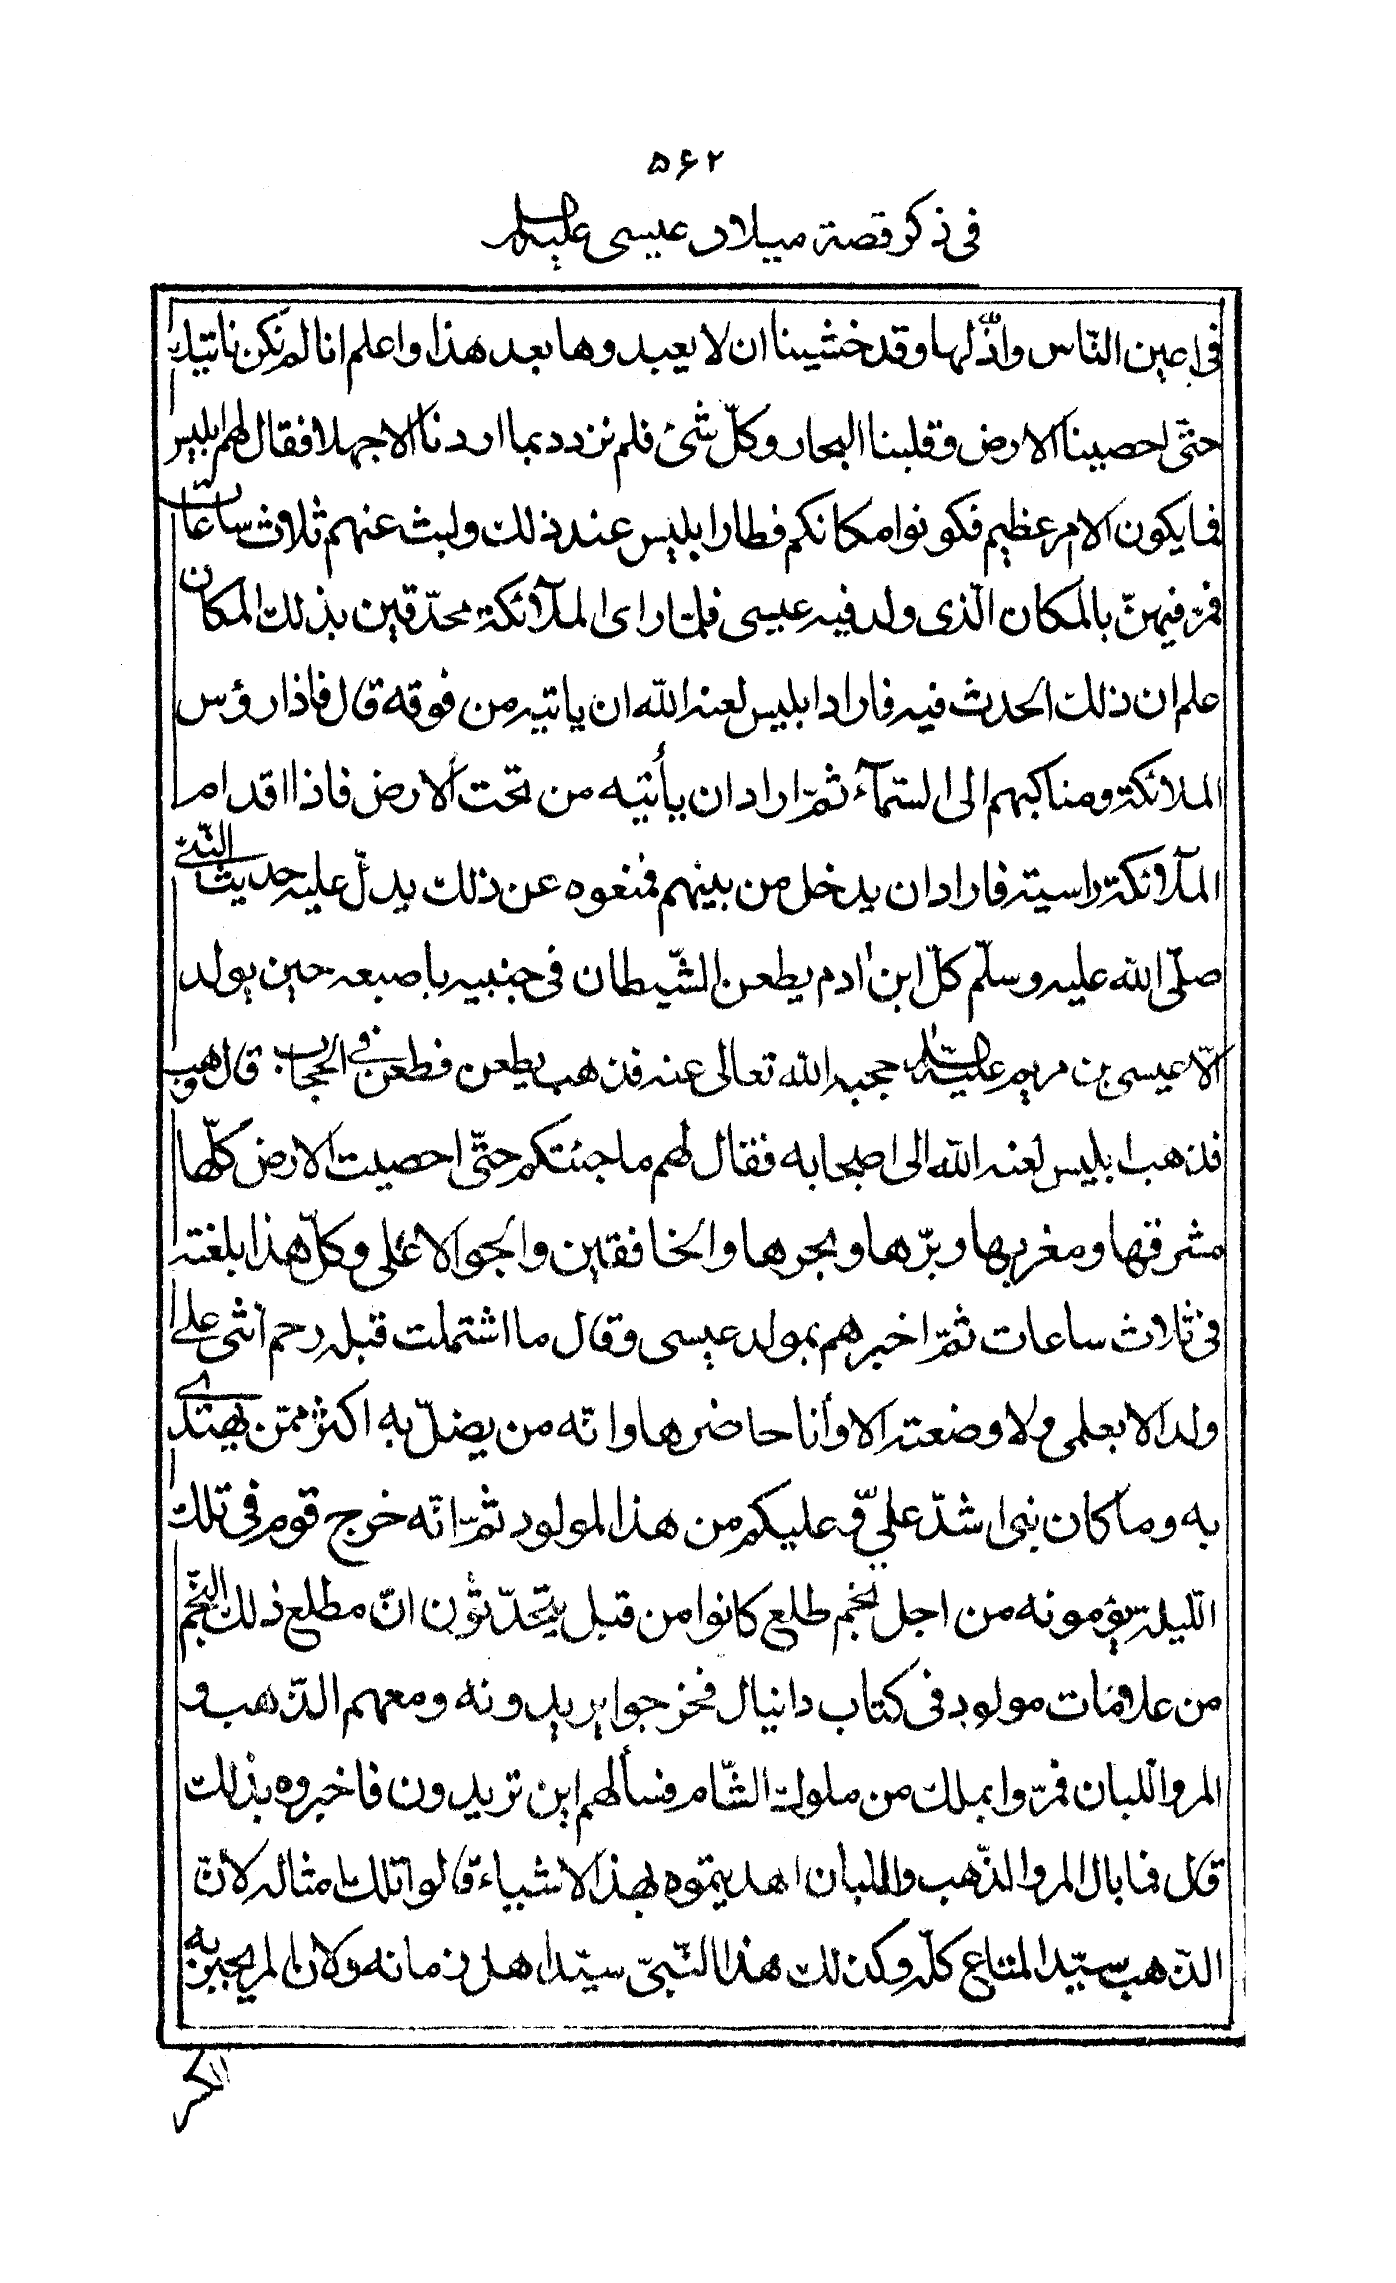 ۵۶۲
فی ذکر قصة میلاد عیسی علیه السلام
فی اعین الناس واذلّها وقد خشینا ان لا یعبدوها بعد هذا واعلم انا لم نکن ناتیك
حتّی احصینا الارض وقلبنا البحار وکلّ شیٔ فلم نزدد بما اردنا الا جهلا فقال لهم ابلیس
فما یکون الا مر عظیم فکونوا مکانکم فطار ابلیس عند ذلك ولبث عنهم ثلاث ساعات
فمرّ فیهنّ بالمکان الّذی ولد فیه عیسی فلمّا رای الملآئکة محدّقین بذلك المکان
علم ان ذلك الحدث فیه فاراد ابلیس لعنه الله ان یاتیه من فوقه قال فاذا رؤس
الملائکة ومناکبهم الی السّمآء ثمّ اراد ان یأتیه من تحت الارض فاذا اقدام
الملآئکة راسیة فاراد ان یدخل من بینهم فمنعوه عن ذلك یدلّ علیه حدیث النّبی
صلّی الله علیه وسلّم کلّ ابن اٰدم یطعن الشّیطان فی جنبیه باصبعه حین یولد
الّا عیسی بن مریم علیه السّلام حجبه الله تعالی عنه فذهب یطعن فطعن فی الحجاب قال وهب
فذهب ابلیس لعنه الله الی اصحابه فقال لهم ما جئتکم حتّی احصیت الارض کلّها
مشرقها ومغربها وبرّها وبحرها والخافقین والجو الاعلی وکلّ هذا بلغته
فی ثلاث ساعات ثمّ اخبرهم بمولد عیسی وقال ما اشتملت قبله رحم انثی علی
ولد الا بعلمی ولا وضعته الا وأنا حاضرها وانّه من یضلّ به اکثر ممّن یهتدی
به وما کان نبی اشدّ علیّ وعلیکم من هذا المولود ثمّ انّه خرج قوم فی تلك
اللّیلة یؤمونه من اجل نجم طلع کانوا من قبل یتحدّثون انّ مطلع ذلك النّجم
من علامات مولود فی کتاب دانیال فخرجوا یریدونه ومعهم الذّهب و
المر واللّبان فمرّوا بملك من ملوك الشّام فسألهم این تریدون فاخبروه بذلك
قال فما بال المر والذّهب واللبان اهدیتموه بهذ الاشیاء قالوا تلك امثاله لانّ
الذّهب سیّد المتاع کلّه وکذلك هذا النّبیّ سیّد اهل زمانه ولان المر یجبر به